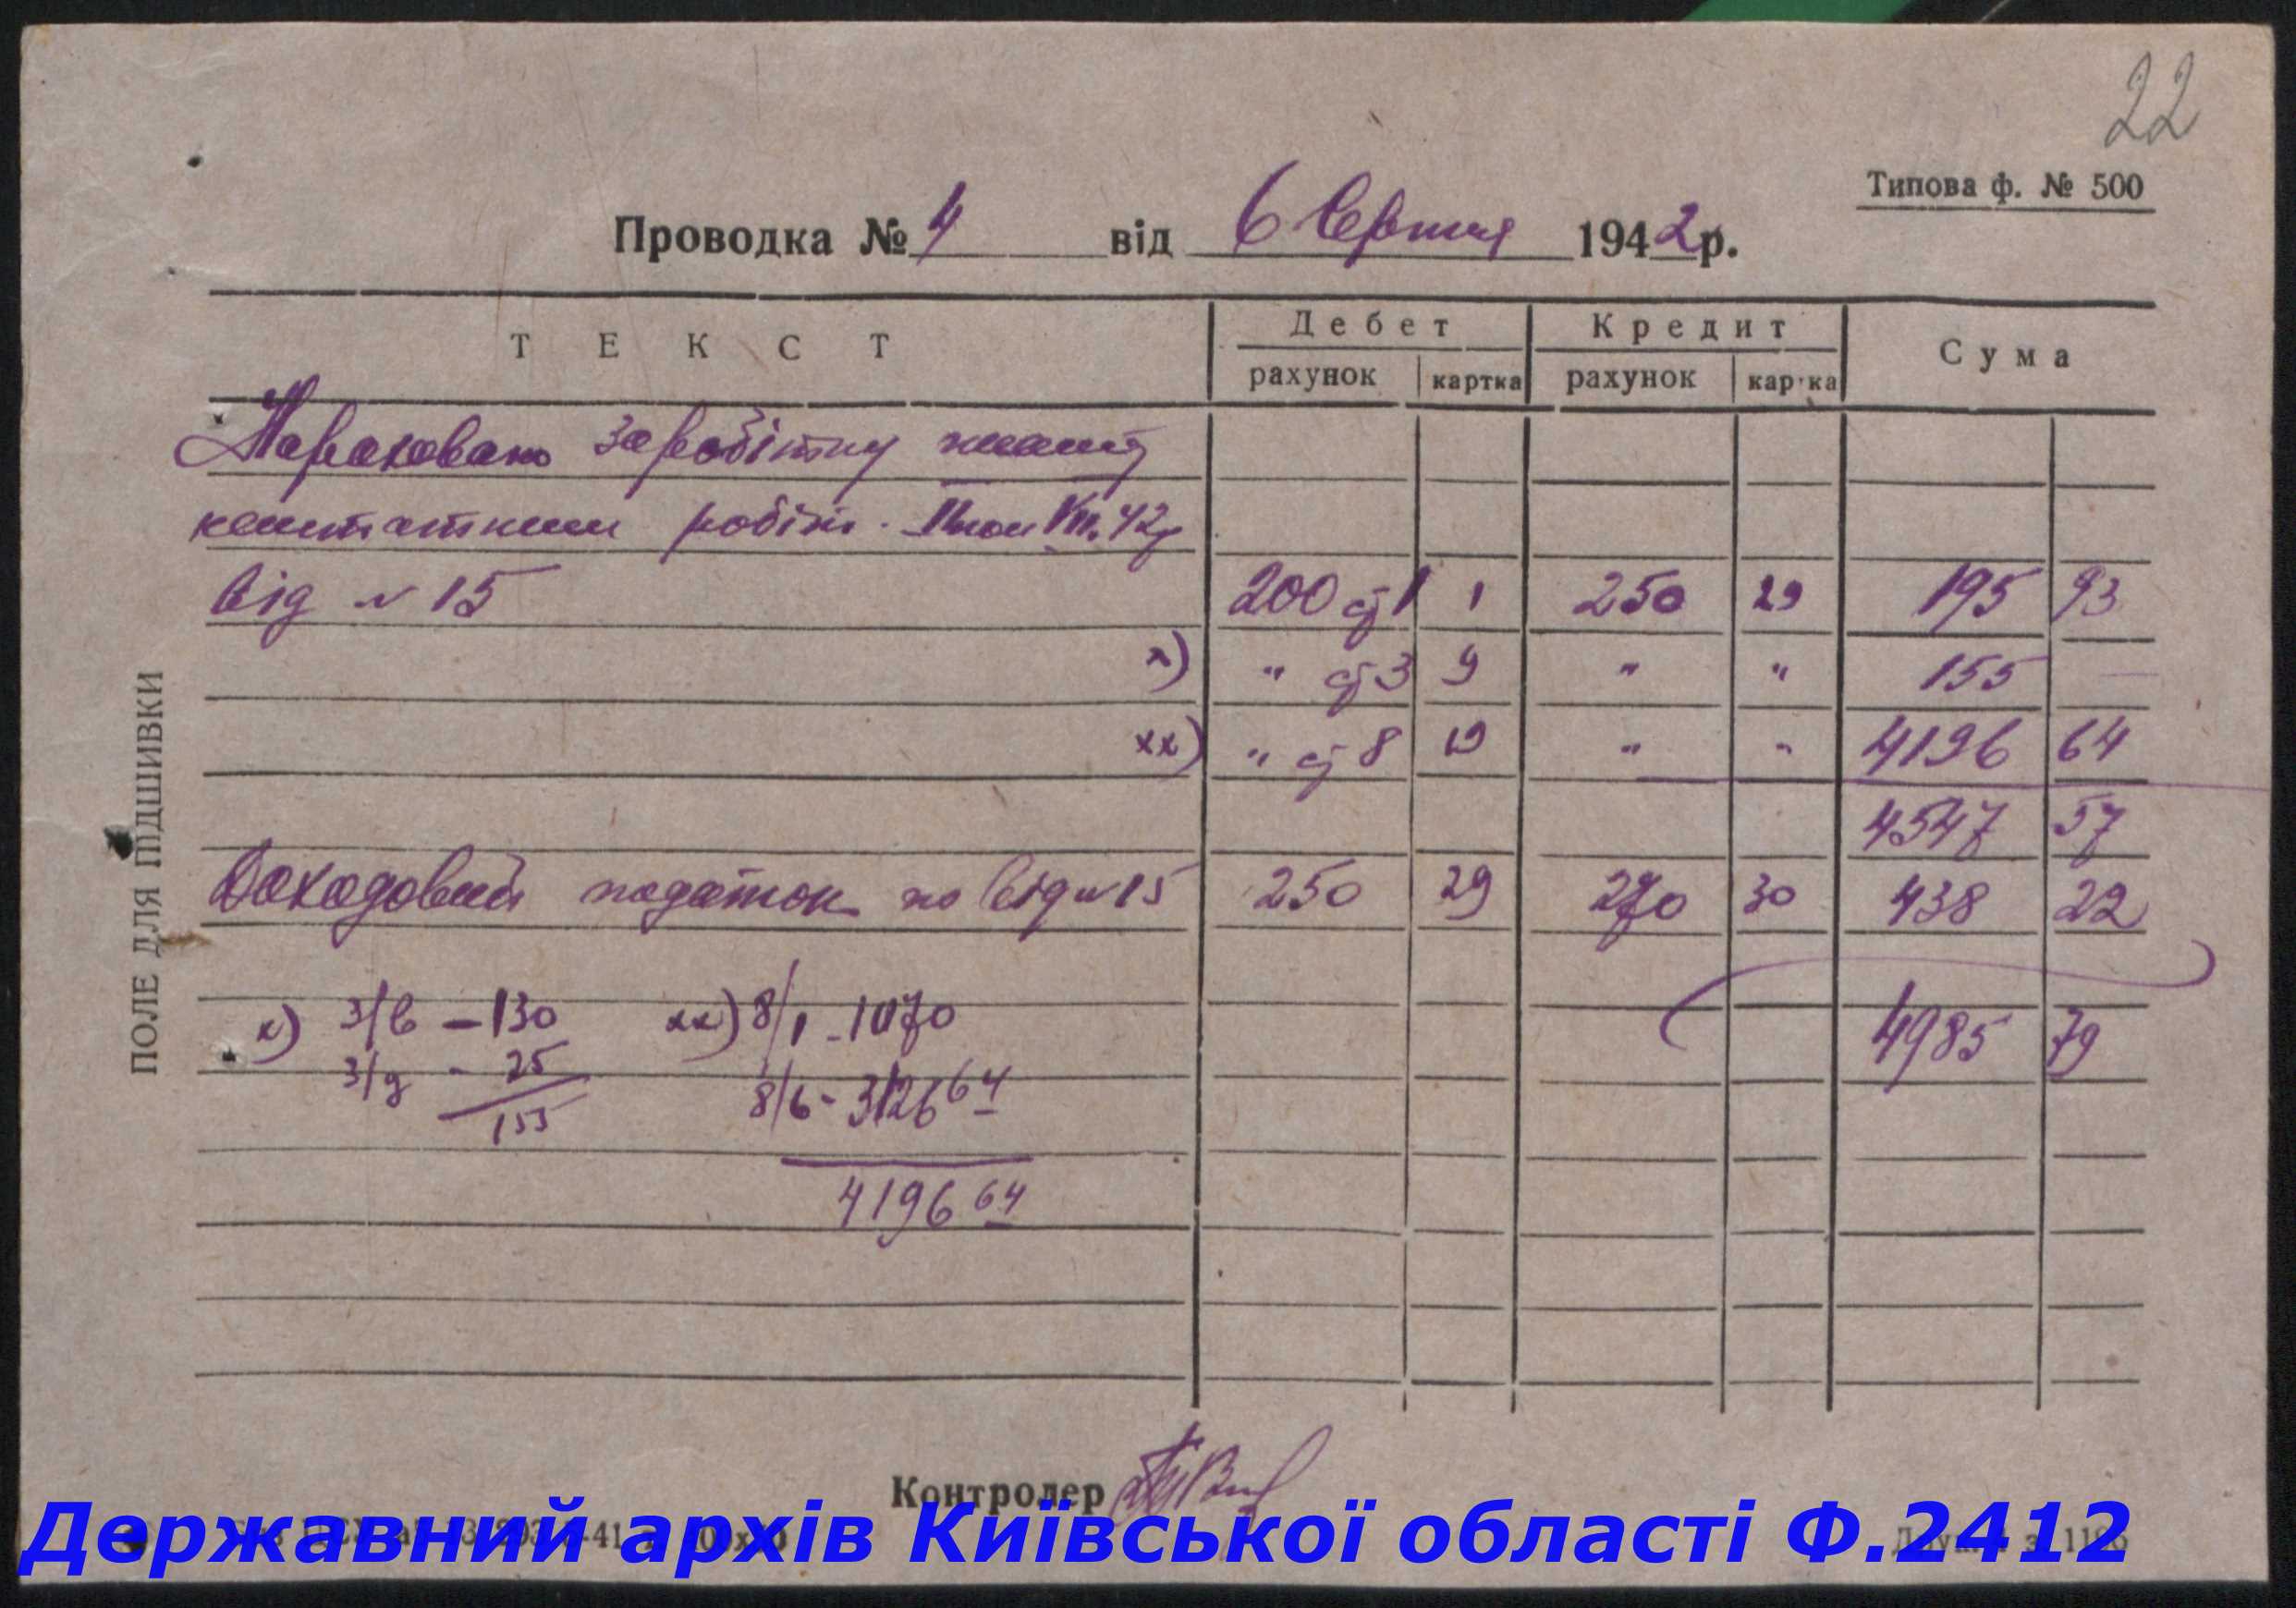 22
Типова ф. № 500
Проводка № 4 від 6 Серпня 1942 р.
ТЕКСТ Дебет Кредит Сума
рахунок картка рахунок картка
Нараховано заробітну плату
нештатним робітн. VII. 42р
від № 15 200 ст 1 1 250 29 195 93
х) " ст 3 9 " " 155 —
хх) " ст 8 19 " " 4196 64
4547 57
Доходовий податок по від № 15 250 29 270 30 438 22
х) 3/6 – 130 хх) 8/1 – 1070 4985 79
3/д – 25 8/6 – 3126 64
155
4196 64
ПОЛЕ ДЛЯ ПІДШИВКИ
Контролер
Державний архів Київської області Ф.2412